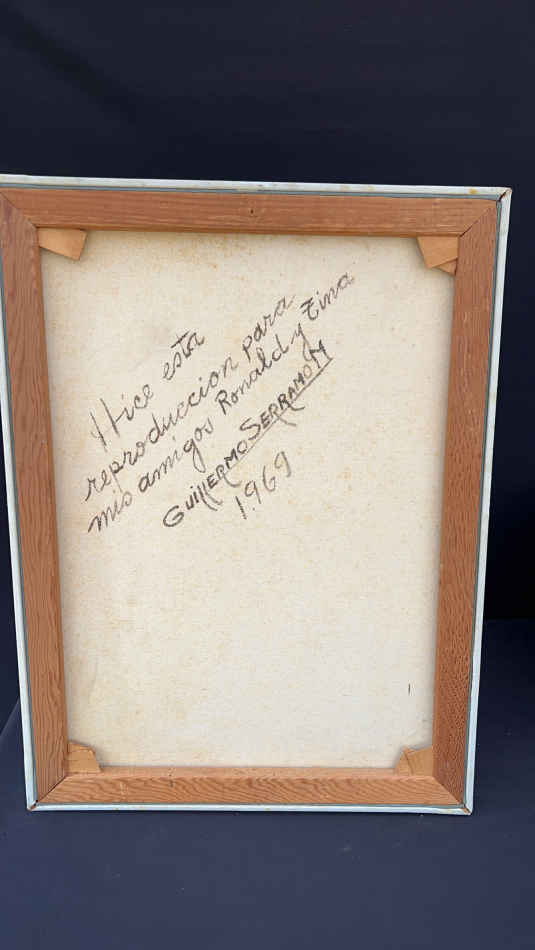 Hice esta
reproduccion para
mis amigos Ronald y Tina
GUILLERMO SERRANO M
1969